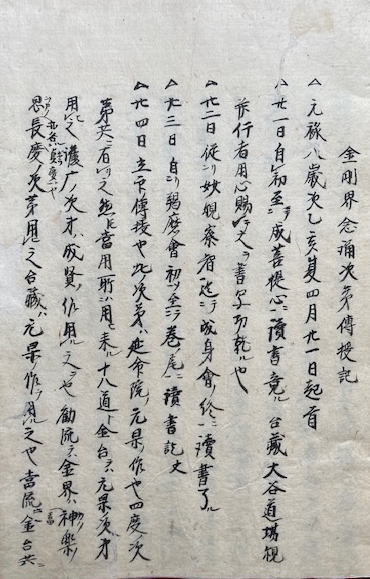 金剛界念誦次第傳授記
△元禄八歳次乙亥夏四月廿一日起首
△廿一日自初至ニ成菩提心ニ讀書竟ル 台藏大谷道場観
并行者用心賜之ヲ書寫功乾ル也
△廿二日従リ妙観察智迄テ成身會ノ終ニ讀書了ル
△廿三日自リ羯磨會ノ初至ル巻ノ尾ニ讀書訖文
△廿四日立印傳授也此次第ハ延命院ノ元杲ノ作也四度次
第共ニ有リ之然ニ當用ル所ノ用ヒ来ル十八道ト金台ハ元杲次第
用ヒ之護广ノ次第ハ成賢ノ作用ル之ヲ也勧流ニハ金界ハ神樂
畏長慶ノ次第用ヒ之台藏ハ元杲作ヲ用ル之也當流ハ金台共ニ